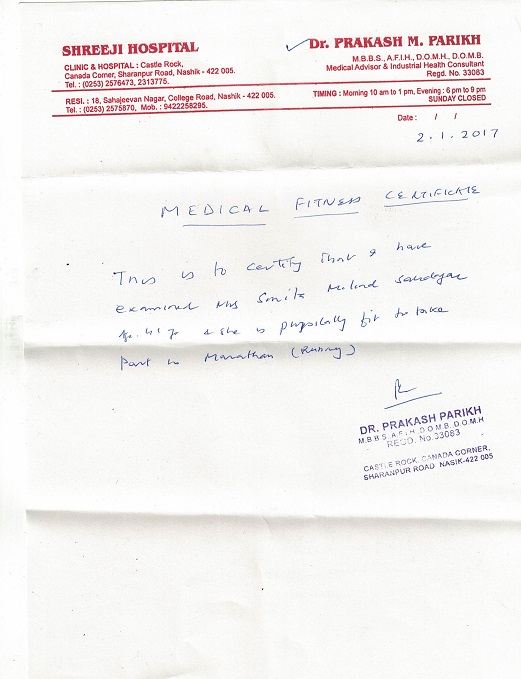 SHREEJI HOSPITAL
CLINIC & HOSPITAL : Castle Rock,
Canada Corner, Sharanpur Road, Nashik - 422 005.
Tel. : (0253) 2576473, 2313775.
Dr. PRAKASH M. PARIKH
M.B.B.S., A.F.I.H., D.O.M.H., D.O.M.B.
Medical Advisor & Industrial Health Consultant
Regd. No. 33083
RESI. : 18, Sahajeevan Nagar, College Road, Nashik - 422 005.
Tel. : (0253) 2575870, Mob. : 9422258295.
TIMING : Morning 10 am to 1 pm, Evening : 6 pm to 9 pm
SUNDAY CLOSED
Date : / /
2.1.2017
MEDICAL FITNESS CERTIFICATE
This is to certify that I have
examined Mrs Smita Milind
41 & she is physically fit to take
Part in Marathan (Running)
DR. PRAKASH PARIKH
M.B.B.S., A.F.I.H., D.O.M.B. D.O.M.H
REGD. No. 33083
CASTLE ROCK, CANADA CORNER,
SHARANPUR ROAD, NASIK-422 005